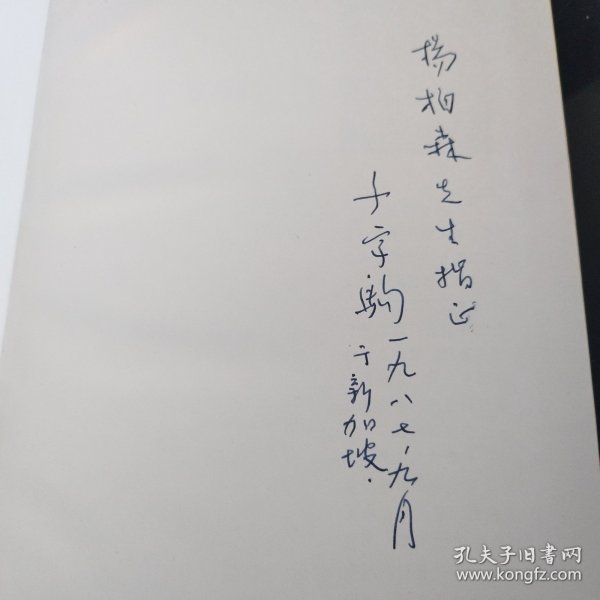 楊柏森先生指正
于宇駒一九八七、九月
于新加坡.
孔夫子旧书网
www.kongfz.com